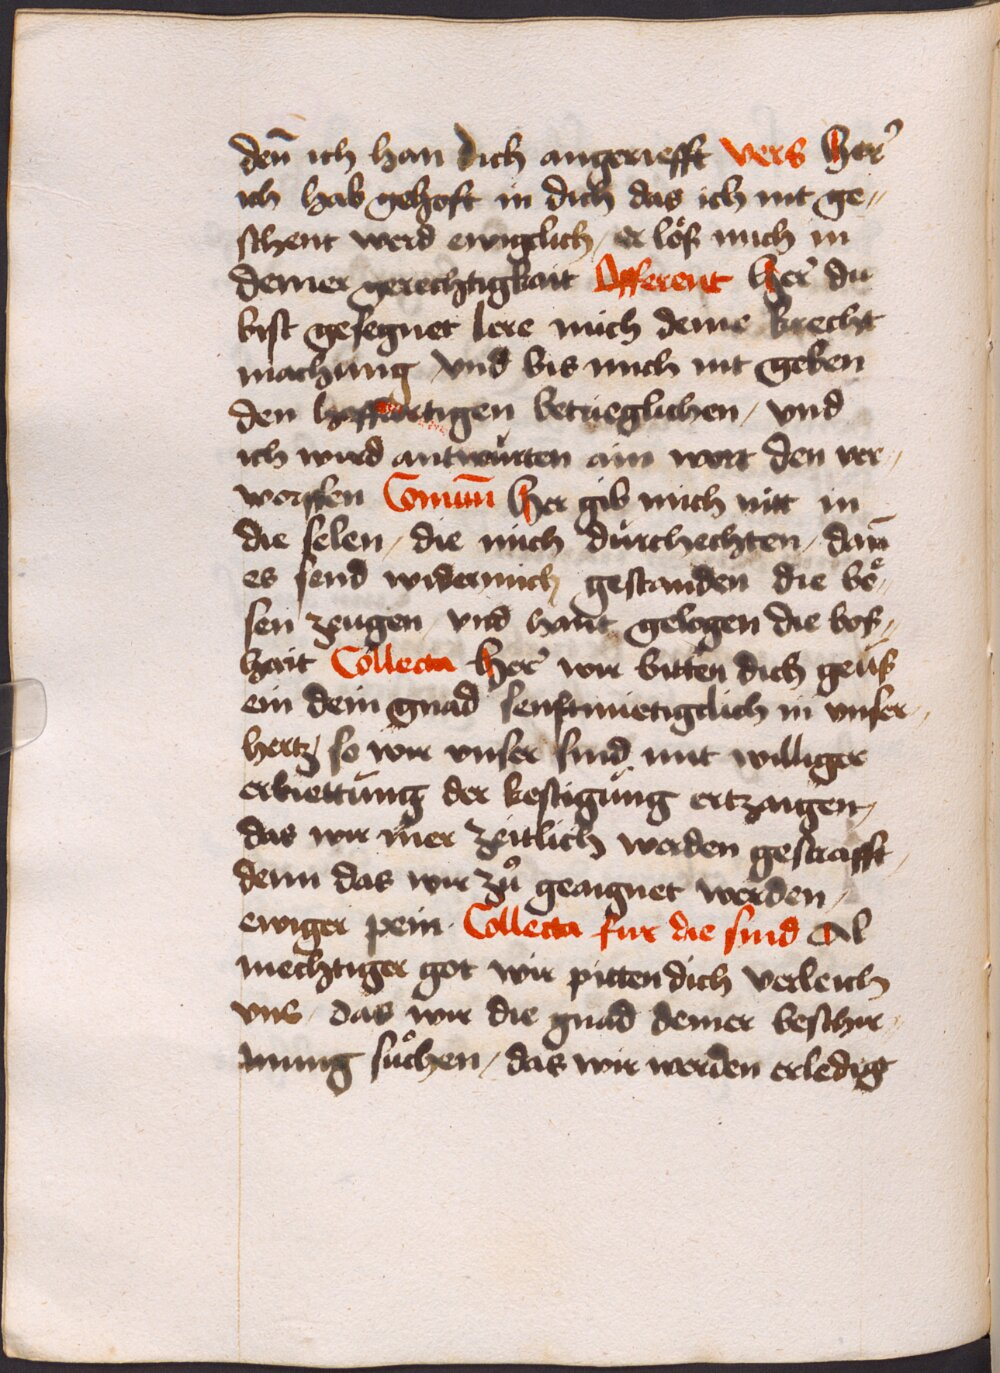 den̄ ich han dich angeriefft vers her͛
ich hab gehoft in dich das ich nit ge//
schent werd ewigclich / er löß mich in
deiner gerechtigkait Offerent her͛ du
bist gesegnet lere mich deine krecht
machung vnd bis mich nit geben
den hoffertigen betrieglichen / vnd
ich wird antwürten ain wort den ver/
worffen Comūn Her gib mich nitt in
die selen / die mich durchechten / dan̄
es send wider mich gestanden die bö/
sen zeugen vnd haut gelogen die bos/
hait Collecta her͛ wir bitten dich geüß
ein dein gnad senftmietigclich in vnser//
hertz so wir vnser sind mit williger
erbiettung der kestigung ertzaigen/
das wir mer zeitlich werden gestrafft /
denn das wir zů geaignet werden /
ewiger pein · Collecta fur die sind Al
mechtiger got wir pitten dich verleich
vns / das wir die gnad deiner beschir/
mung sůchen / das wir werden erledig